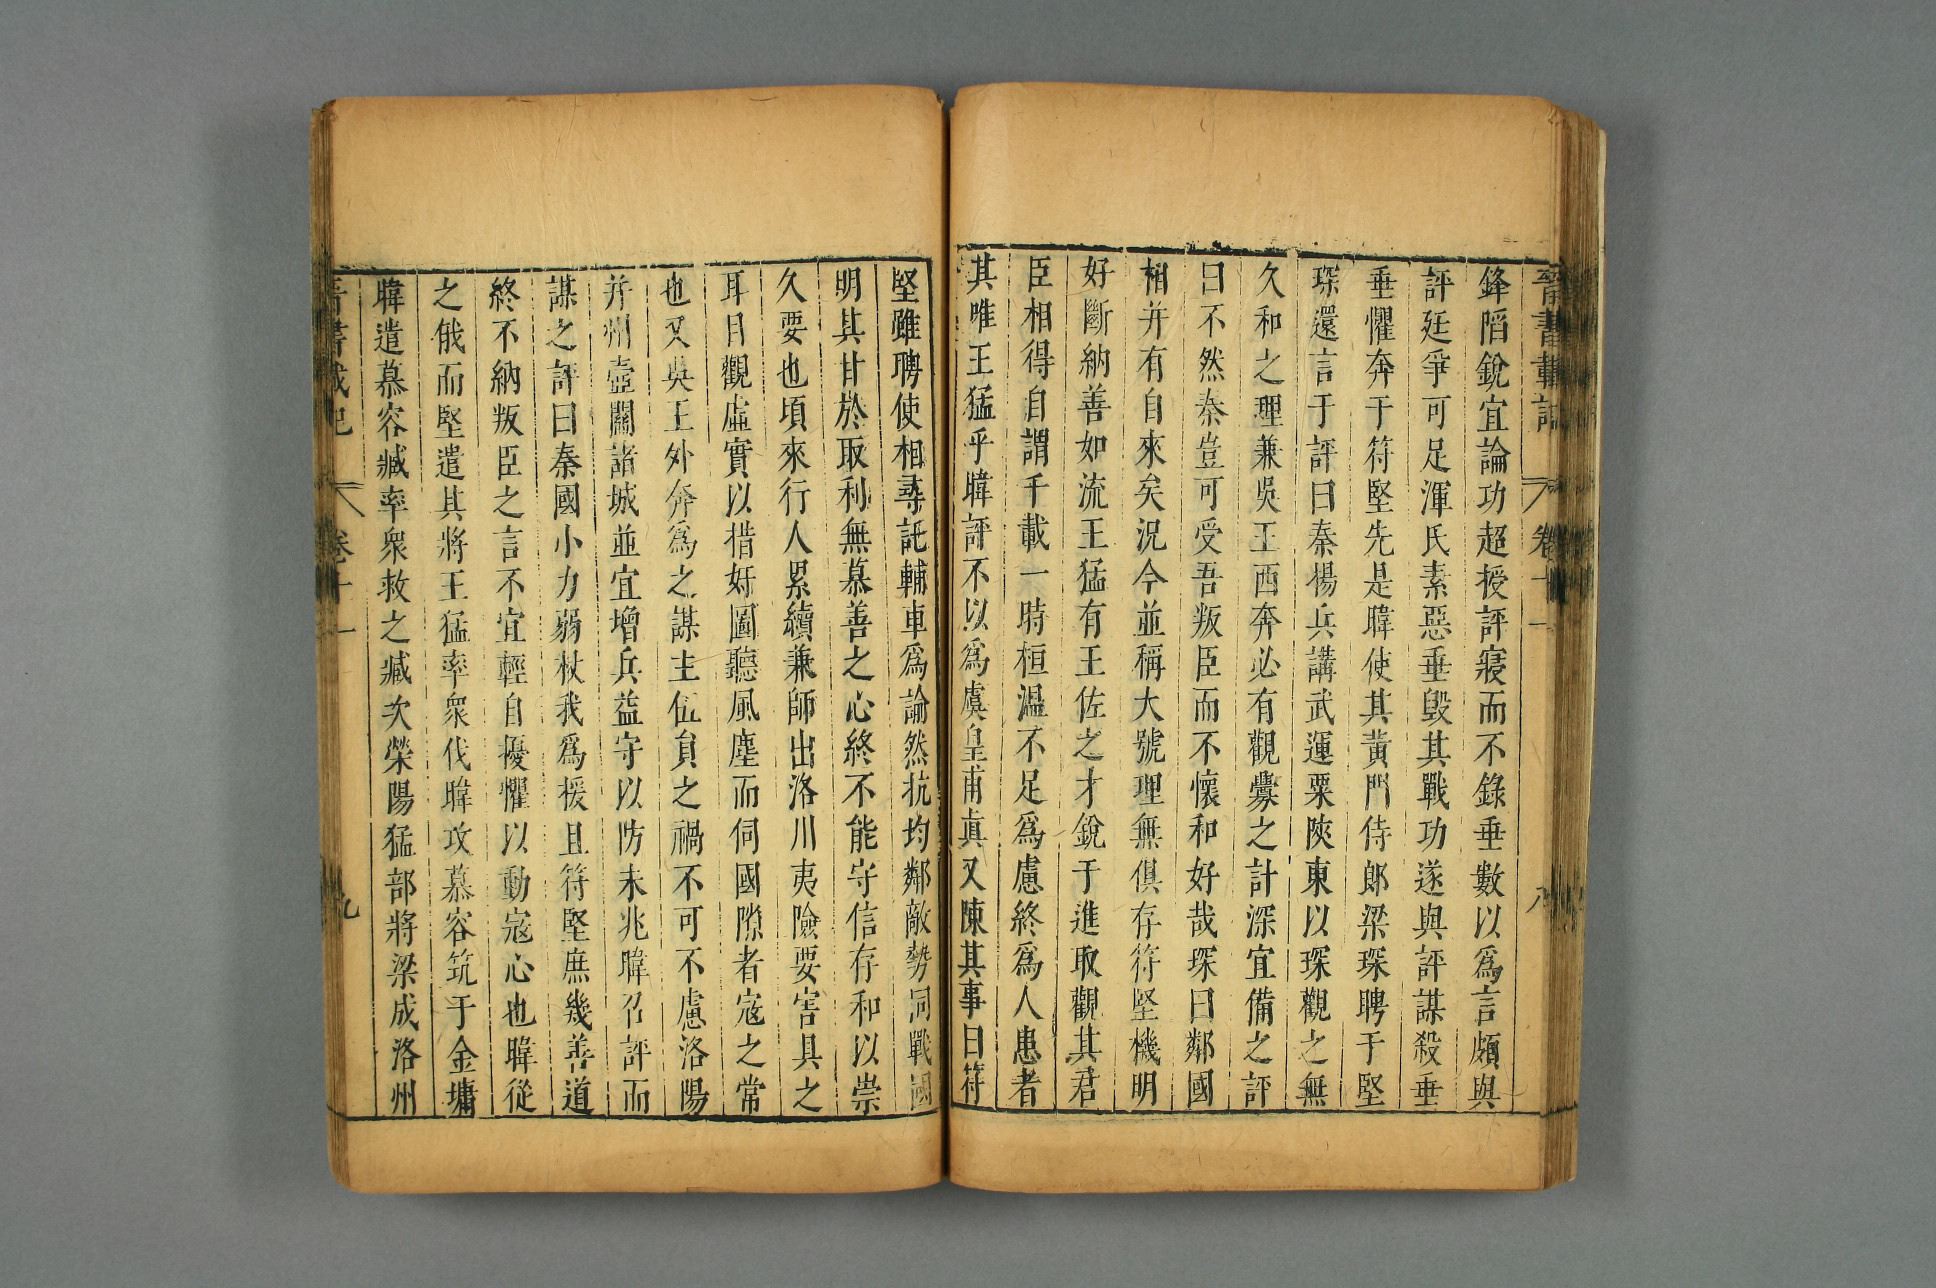 晉書載記 卷十一 八
鋒陷銳宜論功超授評寢而不錄垂數以爲言頗與
評廷爭可足渾氏素惡垂毀其戰功遂與評謀殺垂
垂懼奔于苻堅先是暐使其黃門侍郎梁琛聘于堅
琛還言于評曰秦揚兵講武運粟陝東以琛觀之無
久和之理兼吳王西奔必有觀釁之計深宜備之評
曰不然秦豈可受吾叛臣而不懷和好哉琛曰鄰國
相并有自來矣況今並稱大號理無俱存苻堅機明
好斷納善如流王猛有王佐之才銳于進取觀其君
臣相得自謂千載一時桓溫不足爲慮終爲人患者
其唯王猛乎暐評不以爲虞皇甫真又陳其事曰苻
堅雖聘使相尋託輔車爲諭然抗均鄰敵勢同戰國
明其甘於取利無慕善之心終不能守信存和以崇
久要也頃來行人累續兼師出洛川夷險要害具之
耳目觀虛實以措奸圖聽風塵而伺國隙者寇之常
也又吳王外奔爲之謀主伍員之禍不可不慮洛陽
并州壺關諸城並宜增兵益守以防未兆暐召評而
謀之評曰秦國小力弱杖我爲援且苻堅庶幾善道
終不納叛臣之言不宜輕自擾懼以動寇心也暐從
之俄而堅遣其將王猛率衆伐暐攻慕容筑于金墉
暐遣慕容臧率衆救之臧次滎陽猛部將梁成洛州
晉書載記 卷十一 九